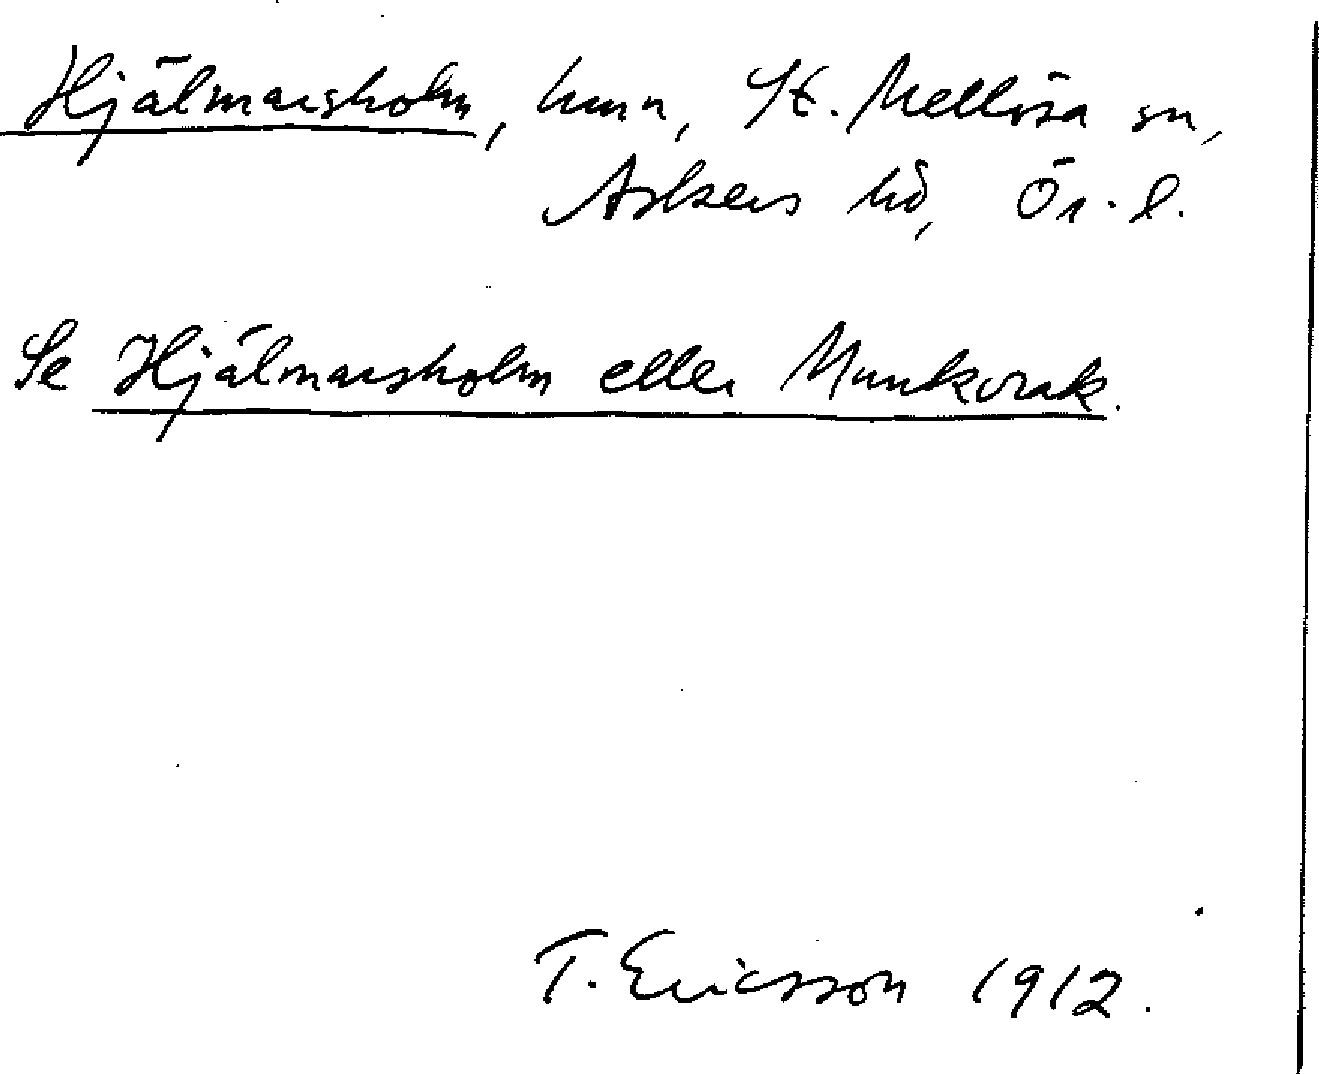 Hjälmarsholm, hmn, St. Mellösa sn,
Askers hd, Ör. l.
Se Hjälmarsholm eller Munkvrak.
T. Ericsson 1912.